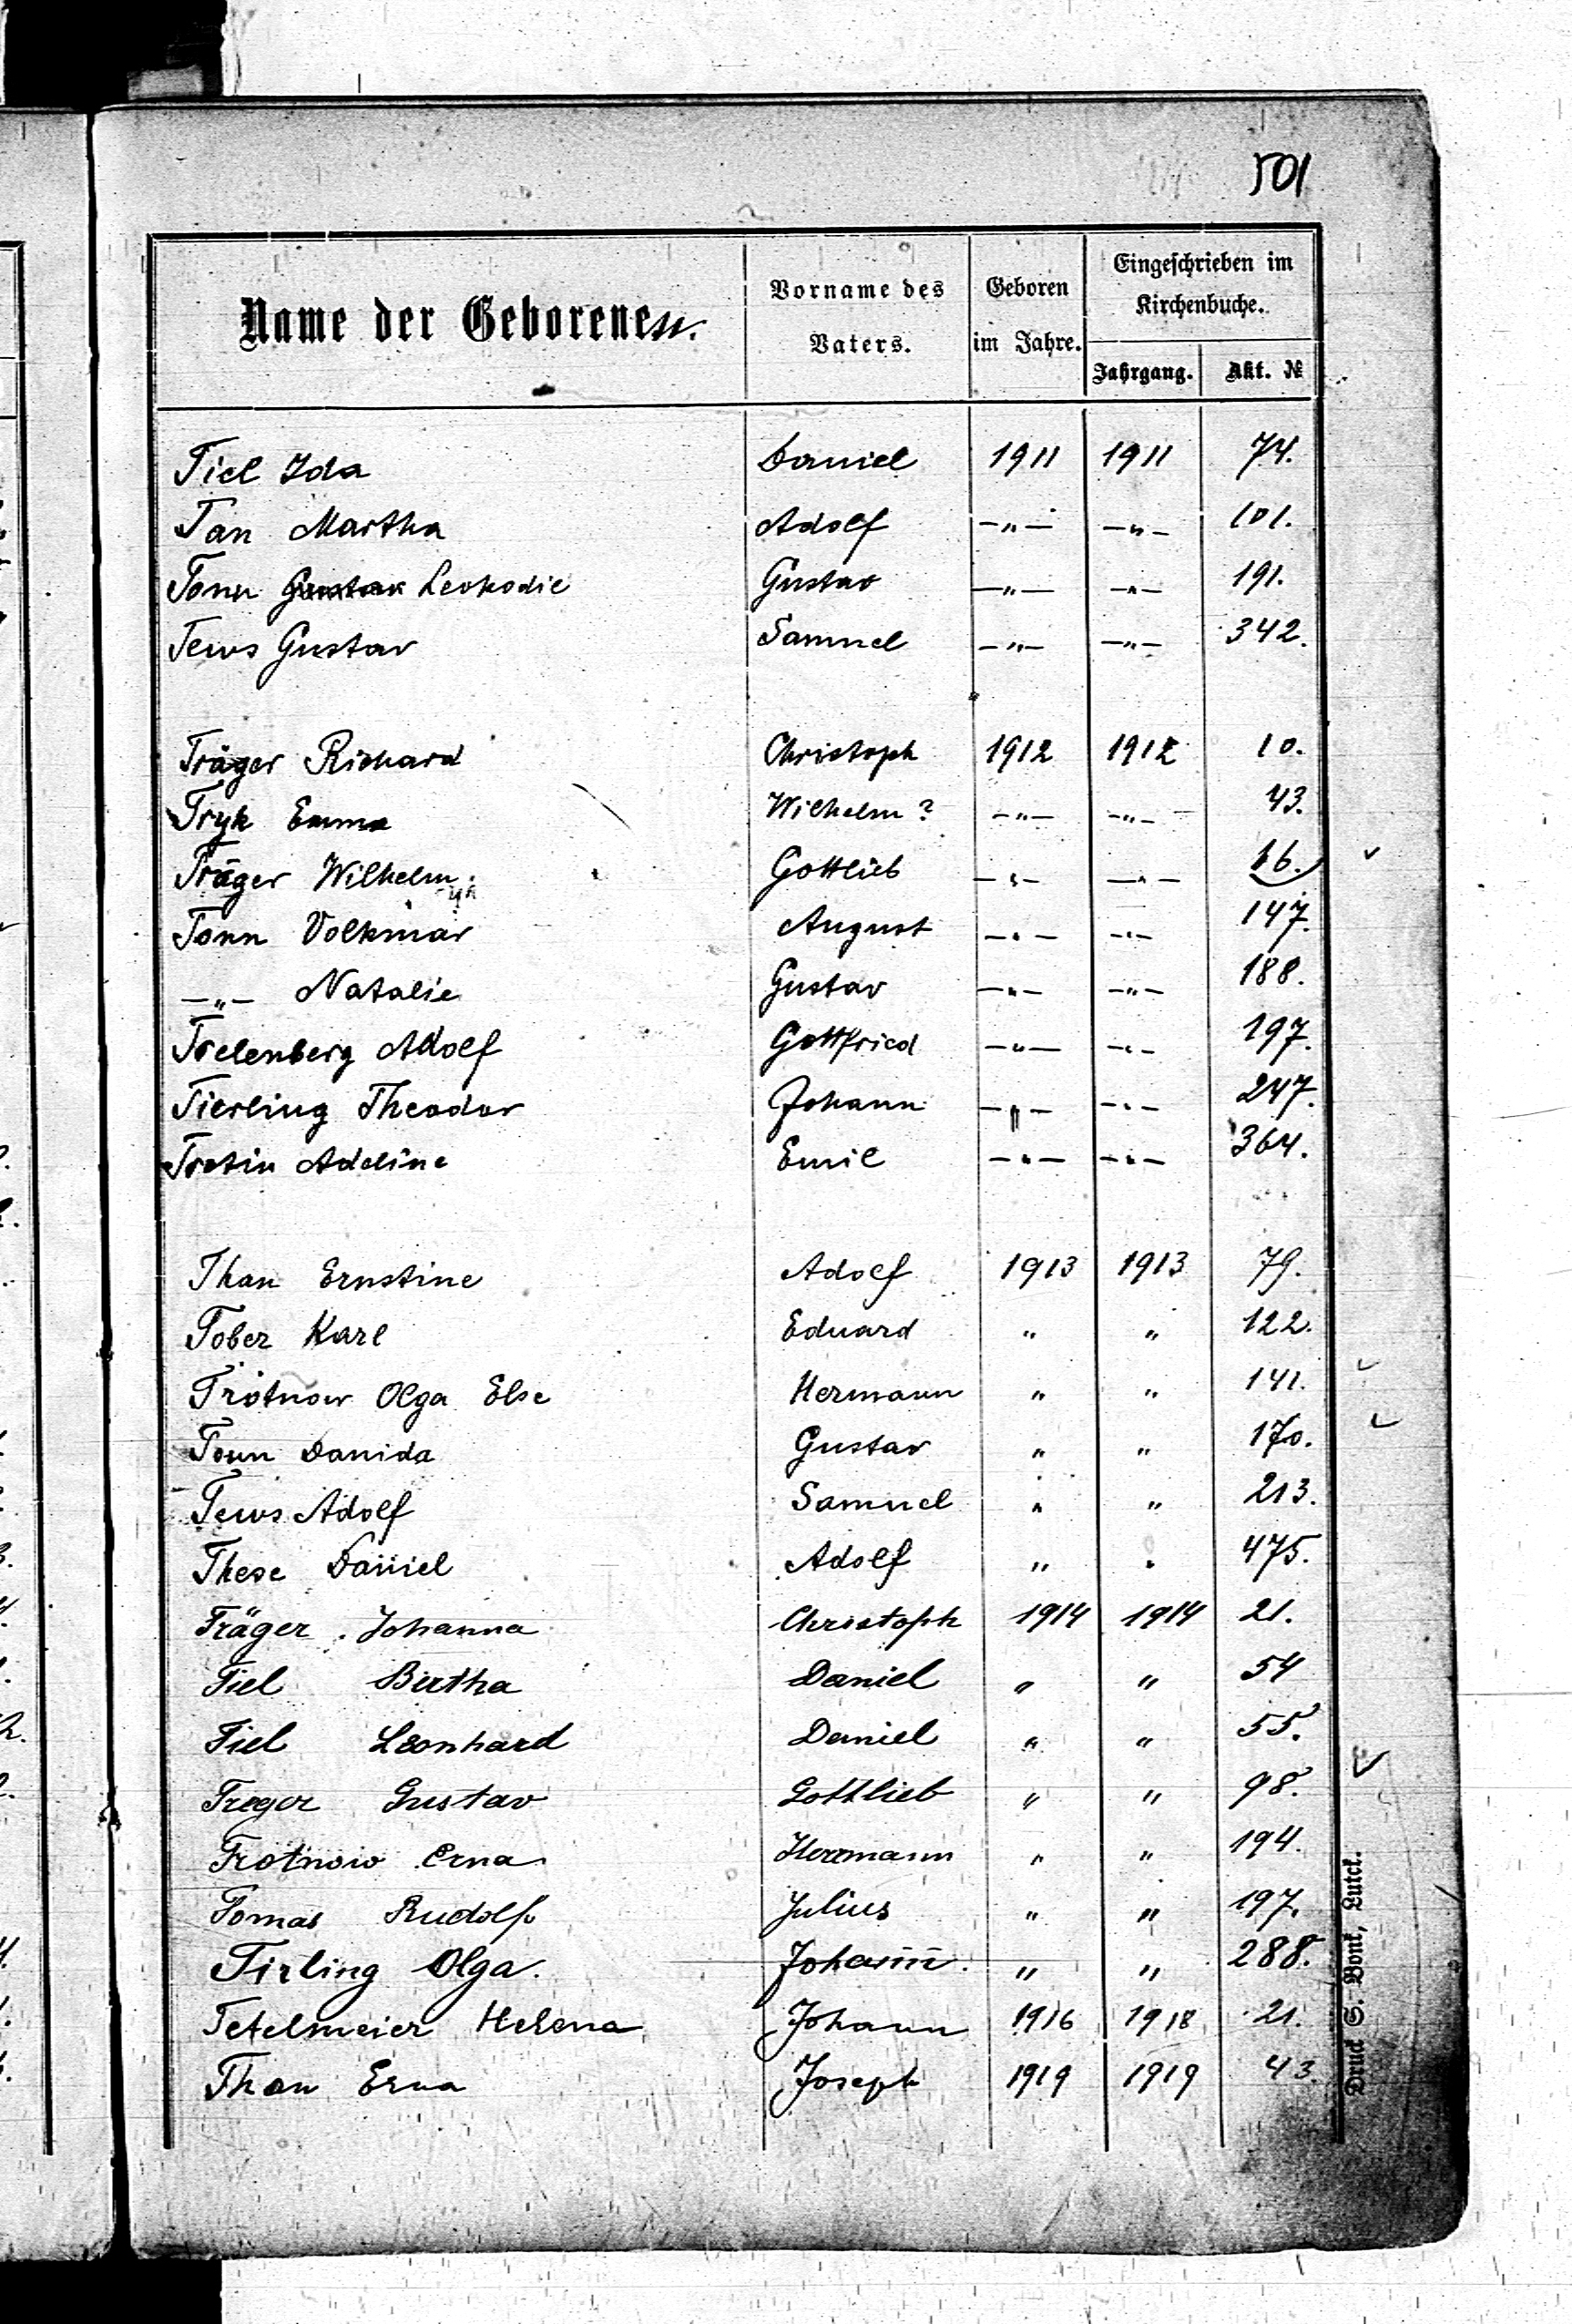 501
Name der Geborenen.
Vorname des Vaters.
Geboren im Jahre.
Eingeschrieben im Kirchenbuche.
Jahrgang.
Akt. №
Tiel Ida Daniel 1911 1911 74.
Tan Martha Adolf —„— —„— 101.
Tonn Gustav Leokodie Gustav —„— —„— 191.
Tews Gustav Samuel —„— —„— 342.
Träger Richard Christoph 1912 1912 10.
Tryk Emma Wilhelm ? —„— —„— 43.
Träger Wilhelm Gottlieb —„— —„— 16.
Tonn Volkmar August —„— —„— 147.
—„— Natalie Gustav —„— —„— 188.
Trelenberg Adolf Gottfried —„— —„— 197.
Tierling Theodor Johann —„— —„— 247.
Tretin Adeline Emil —„— —„— 364.
Than Ernstine Adolf 1913 1913 79.
Tober Karl Eduard „ „ 122.
Trötnow Olga Else Hermann „ „ 141.
Tonn Danida Gustav „ „ 170.
Tews Adolf Samuel „ „ 213.
These Daniel Adolf „ „ 475.
Träger Johanna Christoph 1914 1914 21.
Tiel Bertha Daniel „ „ 54
Tiel Leonhard Daniel „ „ 55.
Treger Gustav Gottlieb „ „ 98.
Trotnow Erna Herrmann „ „ 194.
Tomas Rudolf Julius „ „ 197.
Tirling Olga. Johann̄. „ „ 288.
Tetelmeier Helena Johann 1916 1918 21.
Than Erna Joseph 1919 1919 43
Druck S. Bonk, Lutck.